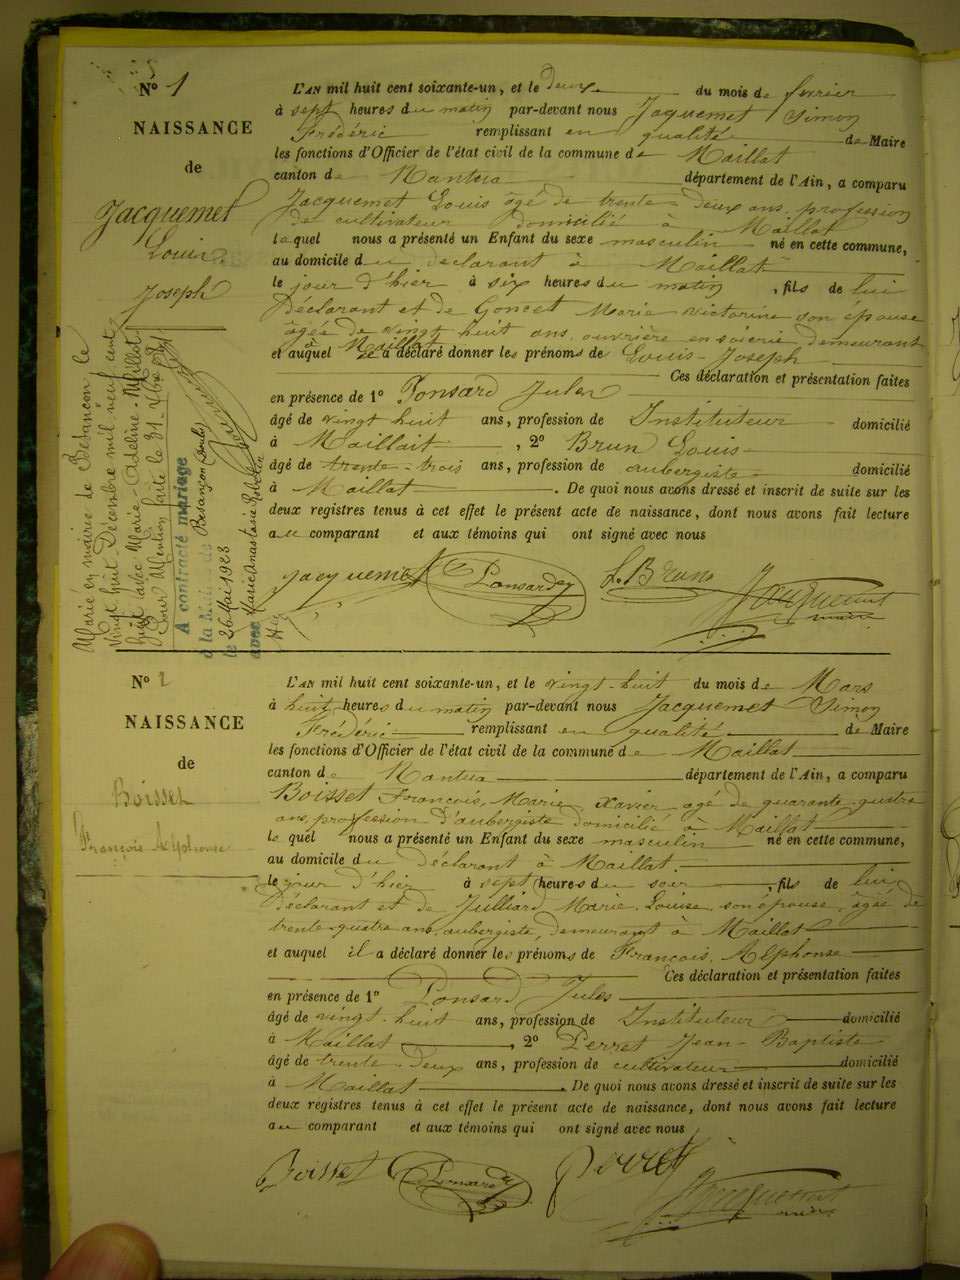 N° 1
NAISSANCE
de
Jacquemet
Louis
Joseph
Marié en mairie de Besançon le
vingt huit Décembre mil neuf cent
huit avec Marie-Adeline Millot
Pour Mention faite le 31-Xbre
A contracté mariage
à la Mairie de Besançon Doubs
le 26 Mai 1923
avec Marie Anastasie Robelin
L'AN mil huit cent soixante-un, et le deux du mois de fevrier
à sept heures du matin par-devant nous Jaquemet Simon
Frédéric remplissant en qualité de Maire
les fonctions d'Officier de l'état civil de la commune de Maillat
canton de Nantua département de l'Ain, a comparu
Jacquemet Louis âgé de trente-deux ans, profession
de cultivateur domicilié à Maillat
lequel nous a présenté un Enfant du sexe masculin né en cette commune,
au domicile du declarant à Maillat
le jour d'hier à six heures du matin, fils de lui
Déclarant et de Goncet Marie Victorine son épouse
âgée de vingt huit ans, ouvrière en soierie demeurant
à Maillat
et auquel il a déclaré donner les prénoms de Louis-Joseph
Ces déclaration et présentation faites
en présence de 1° Ponsard Jules
âgé de vingt huit ans, profession de Instituteur domicilié
à Maillait, 2° Brun Louis
âgé de trente-trois ans, profession de aubergiste domicilié
à Maillat. De quoi nous avons dressé et inscrit de suite sur les
deux registres tenus à cet effet le présent acte de naissance, dont nous avons fait lecture
au comparant et aux témoins qui ont signé avec nous
Jacquemet Ponsard L. Brun Jacquemet
maire
N° 2
NAISSANCE
de
Boisset
François Alphonse
L'AN mil huit cent soixante-un, et le vingt-huit du mois de Mars
à huit heures du matin par-devant nous Jacquemet Simon
Frédéric remplissant en qualité de Maire
les fonctions d'Officier de l'état civil de la commune de Maillat
canton de Nantua département de l'Ain, a comparu
Boisset François, Marie, Xavier, agé de quarante-quatre
ans, profession d'aubergiste domicilié à Maillat
le quel nous a présenté un Enfant du sexe masculin né en cette commune,
au domicile du déclarant à Maillat.
le jour d'hier à sept heures du soir, fils de lui
déclarant et de Julliard Marie-Louise son épouse, âgée de
trente-quatre ans, aubergiste, demeurant à Maillat
et auquel il a déclaré donner les prénoms de François, Alphonse
Ces déclaration et présentation faites
en présence de 1° Ponsard Jules
âgé de vingt-huit ans, profession de Instituteur domicilié
à Maillat, 2° Perret Jean-Baptiste
âgé de trente-deux ans, profession de cultivateur domicilié
à Maillat. De quoi nous avons dressé et inscrit de suite sur les
deux registres tenus à cet effet le présent acte de naissance, dont nous avons fait lecture
au comparant et aux témoins qui ont signé avec nous
Boisset Ponsard Perret Jacquemet
maire